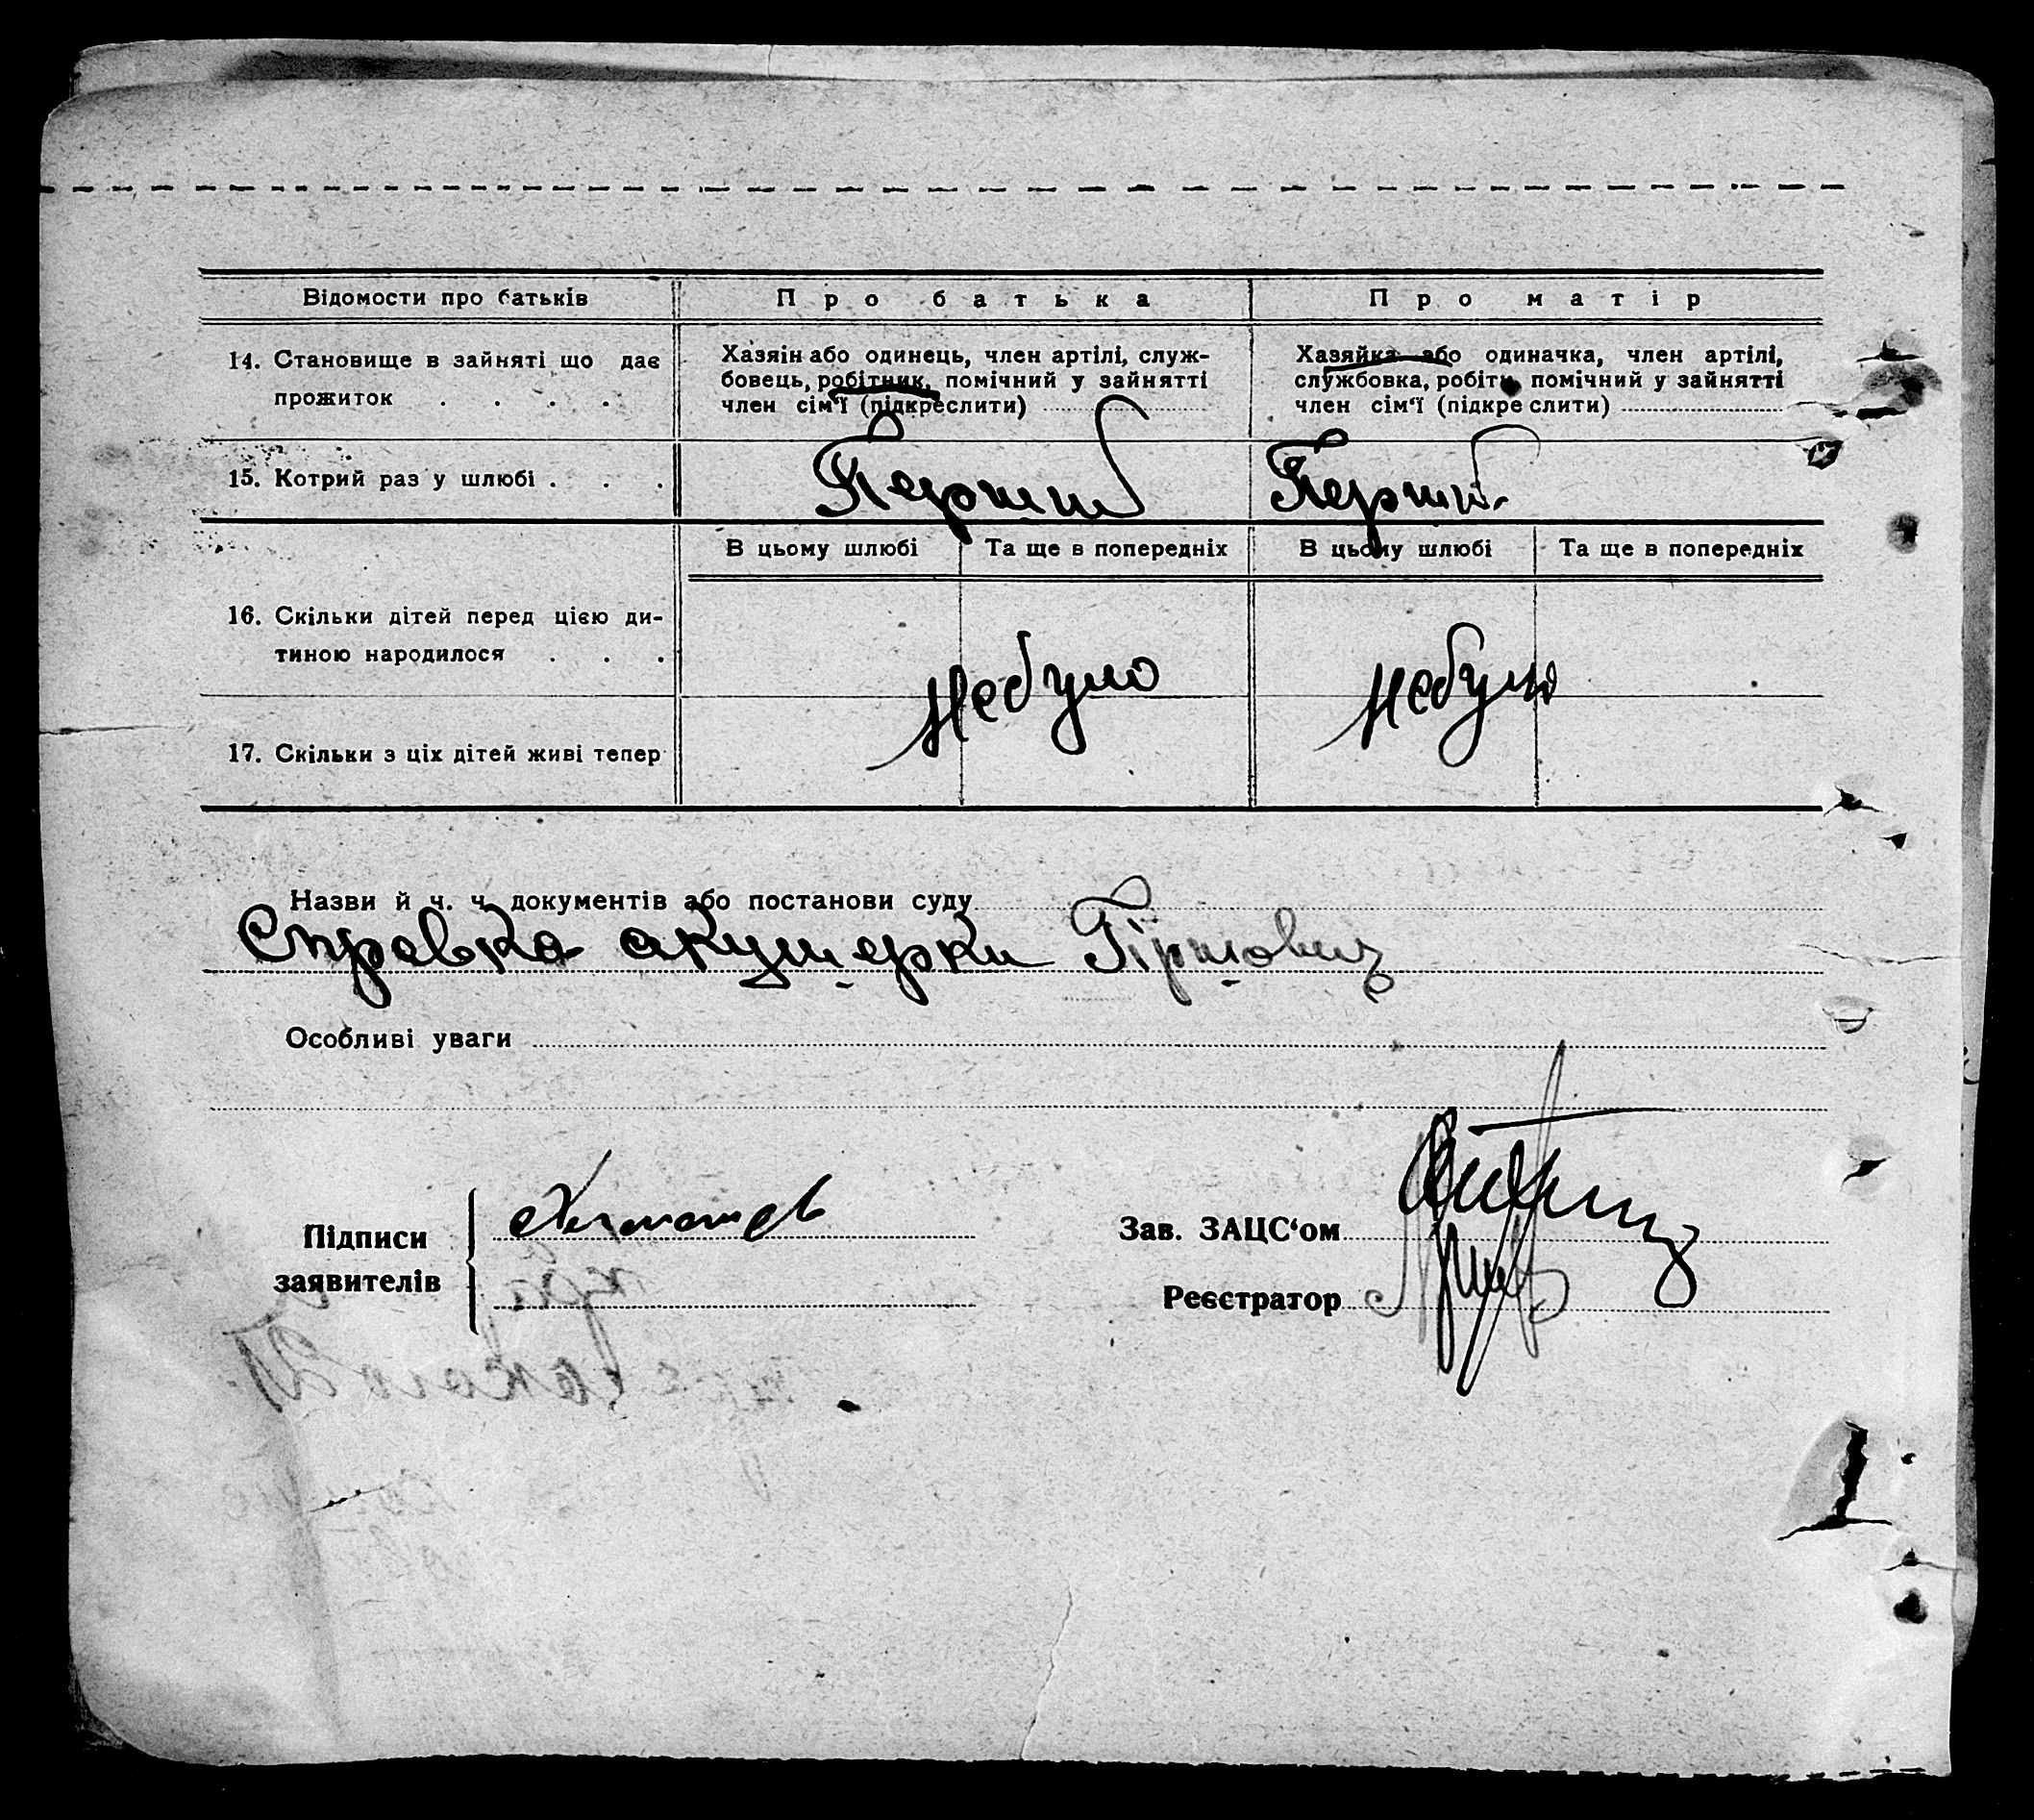 Відомости про батьків
Про батька
Про матір
14. Становище в зайняті що дає
прожиток . . . .
Хазяін або одинець, член артілі, служ-
бовець, робітник, помічний у зайнятті
член сім'ї (підкреслити)
Хазяйка або одиначка, член артілі,
службовка, робітн. помічний у зайнятті
член сім'ї (підкреслити)
15. Котрий раз у шлюбі . . .
Перший
Перший
В цьому шлюбі
Та ще в попередніх
В цьому шлюбі
Та ще в попередніх
16. Скільки дітей перед цією ди-
тиною народилося . . .
Небуло
Небуло
17. Скільки з ціх дітей живі тепер
Назви й ч. ч. документів або постанови суду
Справка акушерки Гіршович
Особливі уваги
Підписи
заявителів
Зав. ЗАЦС'ом
Реєстратор